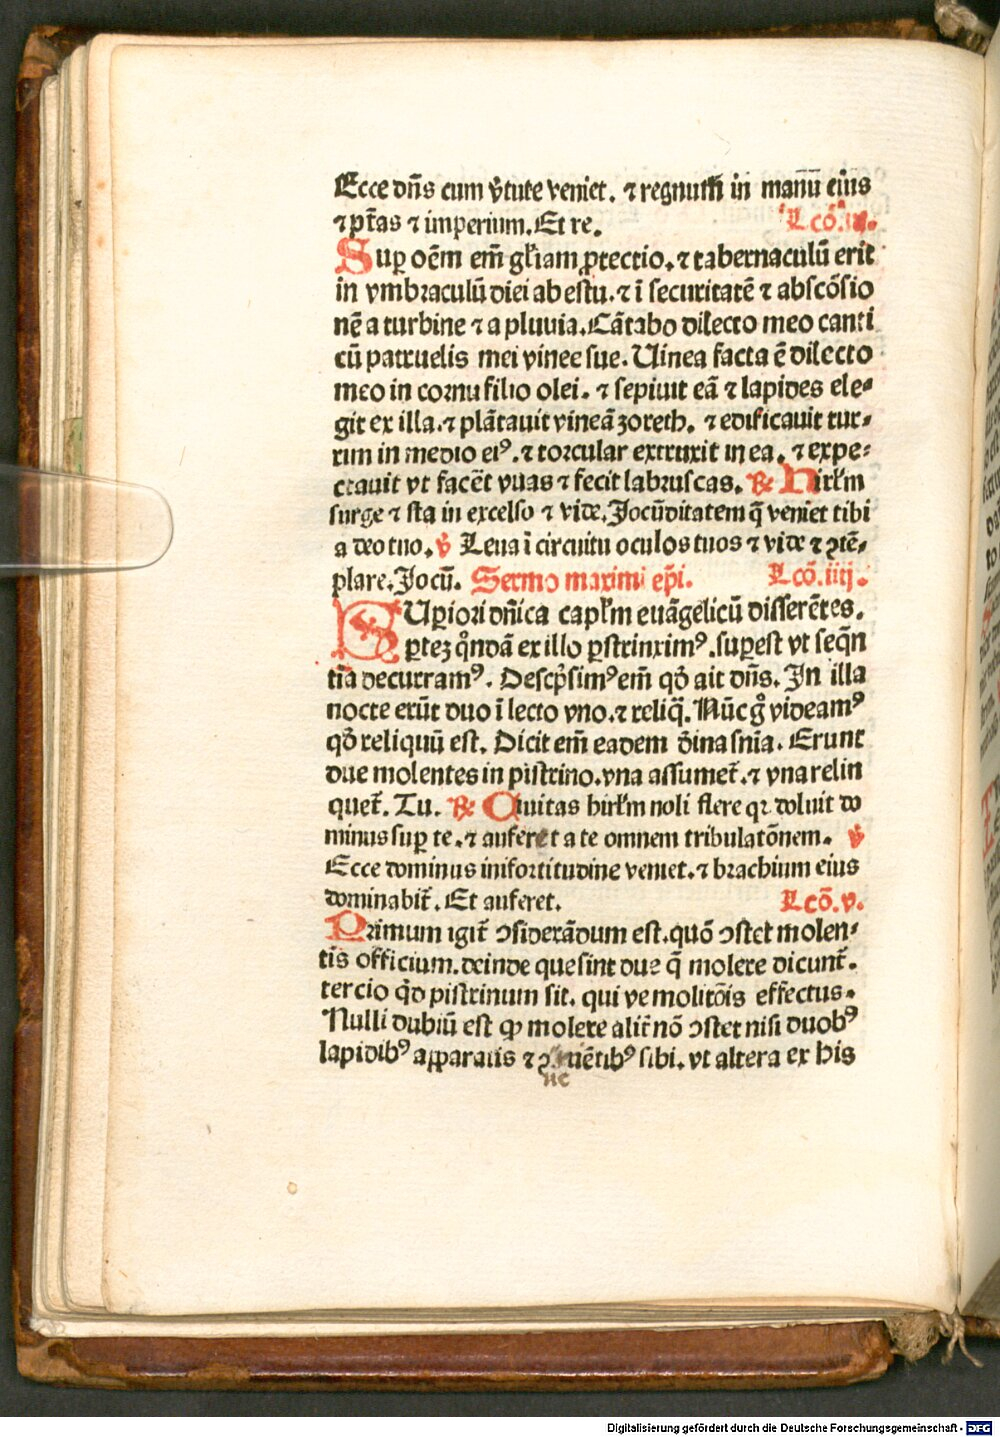 Ecce dn̄s cum v̾tute veniet. ⁊ regnum̄ in manū eius
⁊ pt̄as ⁊ imperium. Et re. Lcō. iij.
Suꝑ oēm em̄ gl̄iam ꝓtectio. ⁊ tabernaculū erit
in vmbraculū diei ab estu. ⁊ ī securitatē ⁊ abscōsio
nē a turbine ⁊ a pluuia. Cātabo dilecto meo canti
cū patruelis mei vinee sue. Uinea facta ē dilecto
meo in cornu filio olei. ⁊ sepiuit eā ⁊ lapides ele⸗
git ex illa. ⁊ plātauit vineā zoreth. ⁊ edificauit tur⸗
rim in medio eiꝰ. ⁊ torcular extruxit in ea. ⁊ expe⸗
ctauit vt facēt vuas ⁊ fecit labruscas. ℟ Hirl̄m
surge ⁊ sta in excelso ⁊ vide. Jocūditatem q̄ veniet tibi
a deo tuo. ℣ Leua ī circuitu oculos tuos ⁊ vide ⁊ ꝯtē⸗
plare. Jocū. Sermo maximi ep̄i. Lcō. iiij.
SUꝑiori dn̄ica capl̄m euāgelicū disserētes.
ꝑtez q̇ndā ex illo ꝑstrinximꝰ. suꝑest vt seq̄n
tia decurramꝰ. Descp̄simꝰ em̄ qḋ ait dn̄s. In illa
nocte erūt duo ī lecto vno. ⁊ reliq̄. Nūc g̊ videamꝰ
qḋ reliquū est. Dicit em̄ eadem d̄ina sn̄ia. Erunt
due molentes in pistrino. vna assumet̄. ⁊ vna relin
quet̄. Tu. ℟ Ciuitas hirl̄m noli flere qꝛ doluit do
minus suꝑ te. ⁊ auferet a te omnem tribulatōnem. ℣
Ecce dominus in fortitudine veniet. ⁊ brachium eius
dominabit̄. Et auferet. Lcō. v.
Primum igit̄ ꝯsiderādum est. quō ꝯstet molen⸗
tis officium. deinde que sint due q̄ molere dicunt̄.
tercio qḋ pistrinum sit. qui ve molitōis effectus.
Nulli dubiū est ꝙ molere alit̄ nō ꝯstet nisi duobꝰ
lapidibꝰ apparatis ⁊ ꝯ uētibꝰ sibi. vt altera ex his
Digitalisierung gefördert durch die Deutsche Forschungsgemeinschaft - DFG